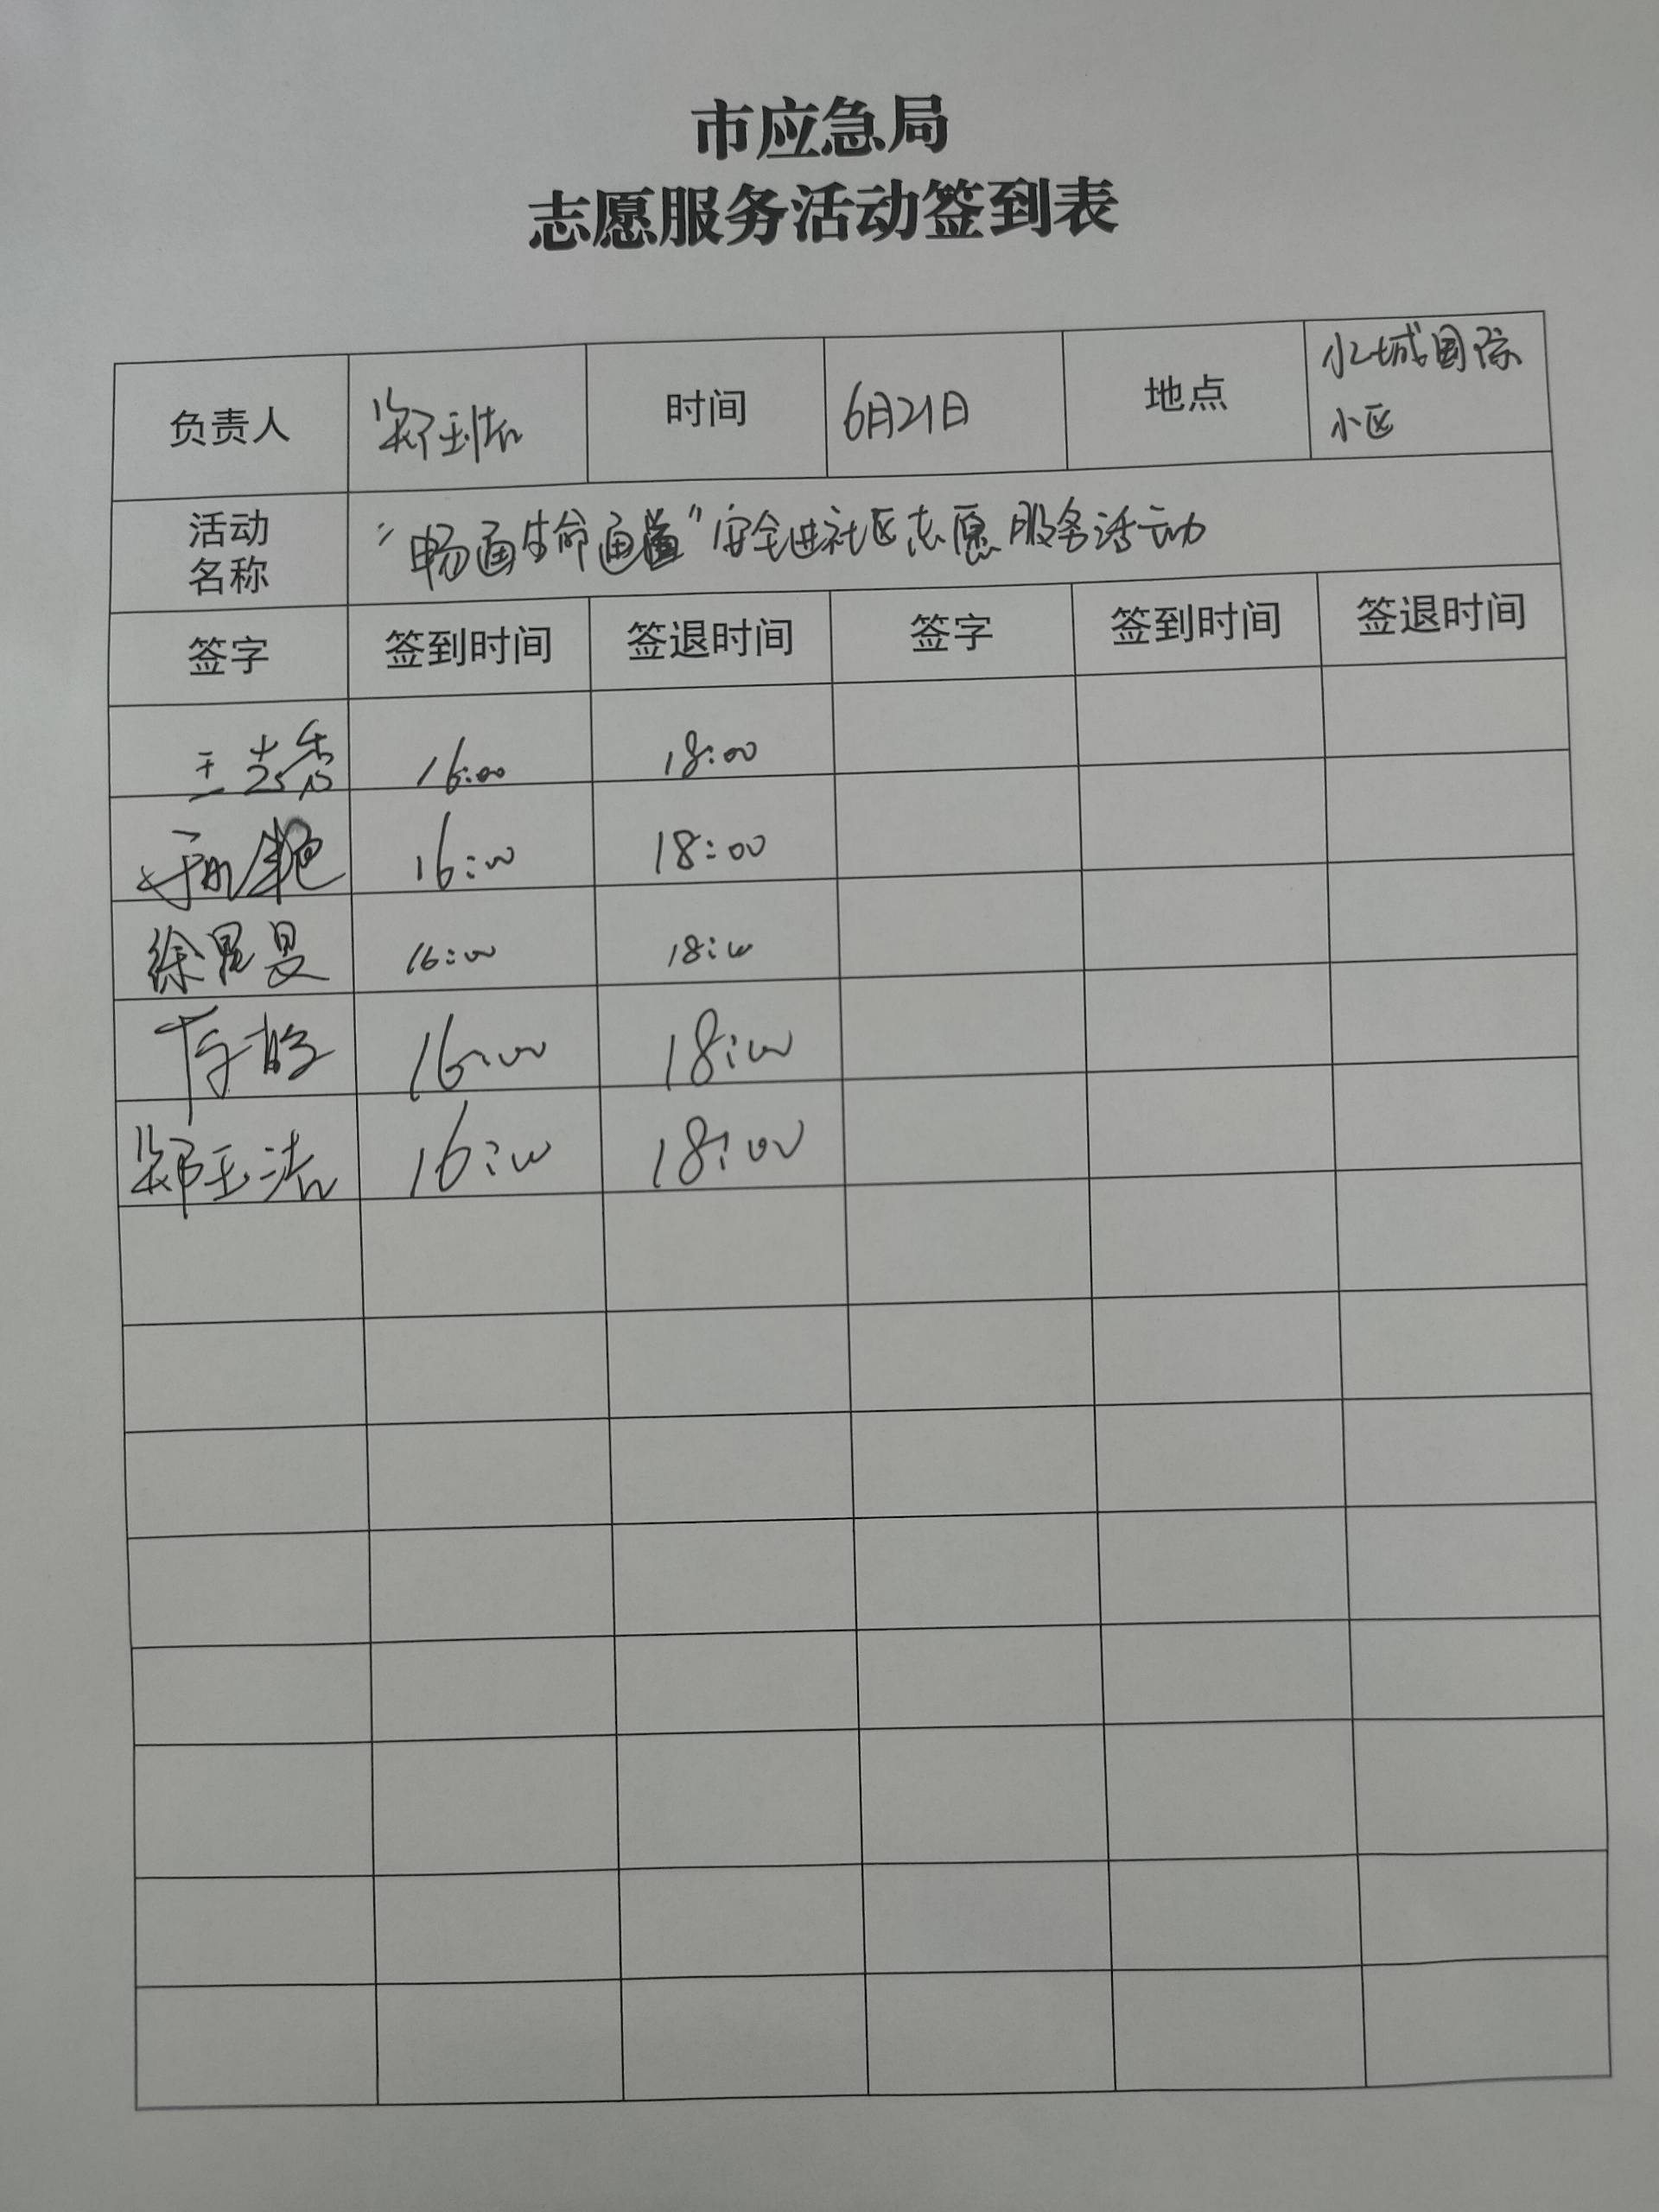 市应急局
志愿服务活动签到表
负责人 郑玉洁 时间 6月21日 地点 水城国际
小区
活动
名称 “畅通生命通道”安全进社区志愿服务活动
签字 签到时间 签退时间 签字 签到时间 签退时间
16:00 18:00
16:00 18:00
徐 16:00 18:00
16:00 18:00
郑玉洁 16:00 18:00